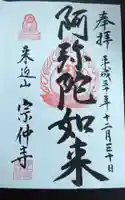 奉拝
平成三十年十二月三十日
阿弥陀如来
来迎山
宗仲寺